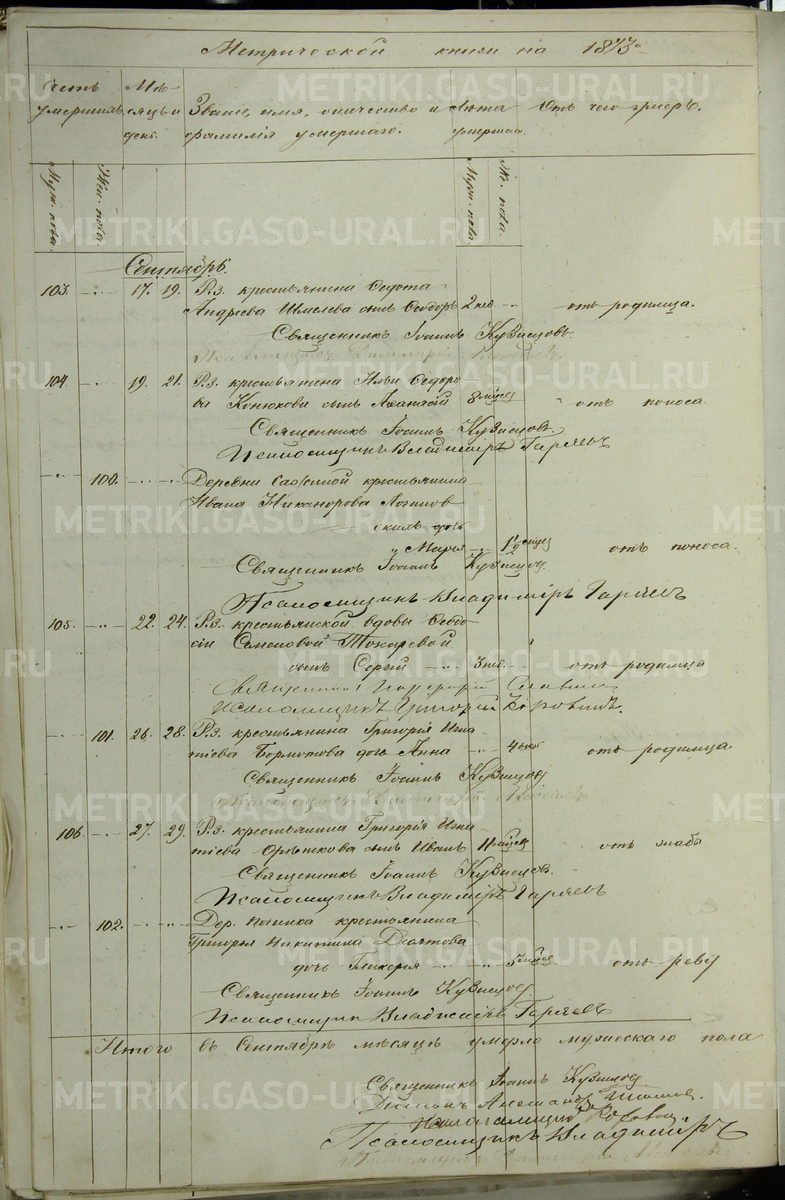 Метрической книги на 1873
Счетъ умершихъ.
Мѣсяцъ и день.
Званіе, имя, отчество и фамилія умершаго.
Лѣта умершаго.
Отъ чего умеръ.
Муж. пола.
Жен. пола.
Муж. пола.
Же. пола.
Сентябрь.
103. 17. 19. Р.з. крестьянина Федота
Андреева Шмелева сынъ Ѳеодоръ 2 нед отъ родимца.
Священникъ Іоаннъ Кузнецовъ.
104. 19. 21. Р.з. крестьянина Ильи Ѳедоро-
ва Конюхова сынъ Аѳанасій 8 мѣсяц отъ поноса.
Священникъ Іоаннъ Кузнецовъ.
Псаломщикъ Владимiръ Гаряевъ
100. Деревни крестьянина
Ивана Никанорова Логинов
скихъ дочь
Марія 1½ мѣсяц отъ поноса.
Священникъ Іоаннъ Кузнецов
Псаломщикъ Владимiръ Гаряевъ
105. 22. 24. Р.з. крестьянской вдовы Ѳеодо-
сіи Семеновой Токаревой
сынъ Сергій 3 нед. отъ родимца
Священникъ Славнин
Псаломщикъ Григорій Коровинъ.
101. 26. 28. Р.з. крестьянина Григорія Игна-
тіева Бормотова дочь Анна 4 отъ родимца.
Священникъ Іоаннъ Кузнецов
106. 27. 29. Р.з. крестьянина Григорія Игна-
тіева Орѣшкова сынъ Иванъ 11 мѣсяц отъ жабы
Священникъ Іоаннъ Кузнецовъ.
Псаломщикъ Владимiръ Гаряевъ
102. Дер. крестьянина
Григорья Никитина
дочь Гликерія 5 мѣсяц отъ реву
Священникъ Іоаннъ Кузнецов
Псаломщик Гаряевъ
Итого въ Сентябрѣ мѣсяцѣ умерло мужескаго пола
Священникъ Іоаннъ Кузнецов
Александръ
Псаломщикъ Владимiръ
METRIKI.GASO-URAL.RU